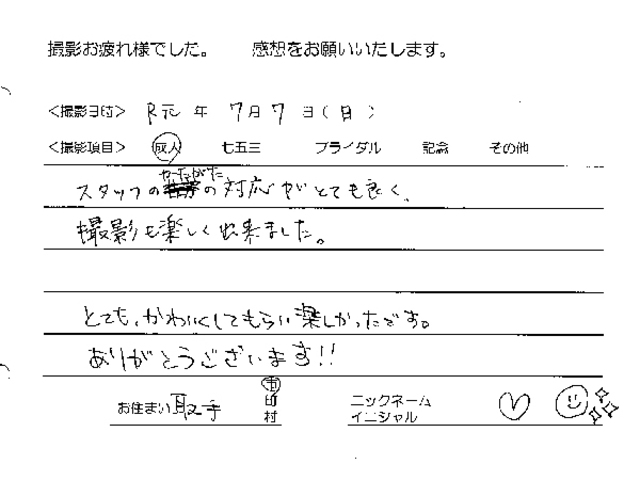 撮影お疲れ様でした。 感想をお願いいたします。
<撮影日時> R元 年 7月 7日(日)
<撮影項目> 成人 七五三 ブライダル 記念 その他
かたがた
スタッフの の対応がとても良く、
撮影も楽しく出来ました。
とても、かわいくしてもらい楽しかったです。
ありがとうございます!!
お住まい 取手 市 町 村 ニックネーム イニシャル ♡